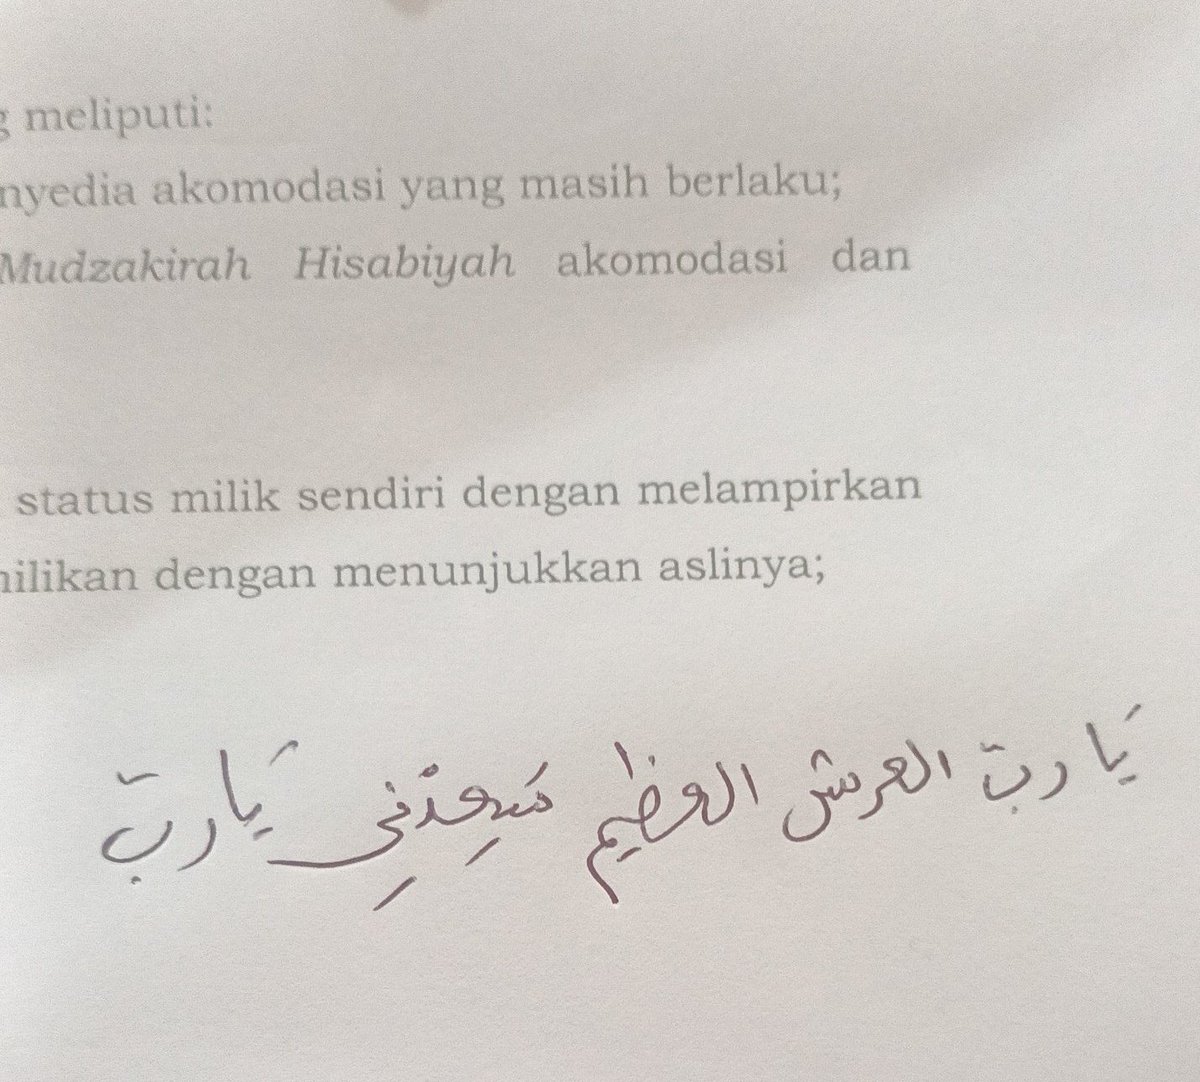 g meliputi:
nyedia akomodasi yang masih berlaku;
Mudzakirah Hisabiyah akomodasi dan
status milik sendiri dengan melampirkan
ilikan dengan menunjukkan aslinya;
يَا ربّ العرش العظيم يَا ربّ